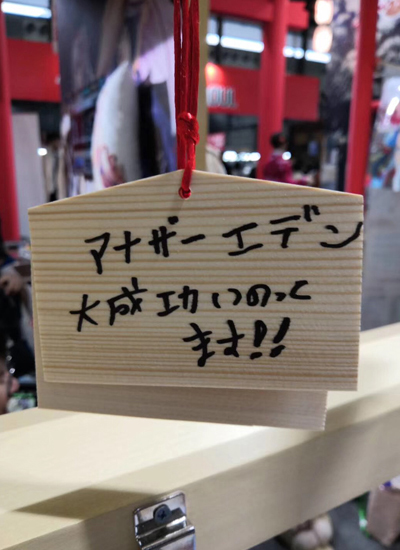 アナザーエデン
大成功いのって
ます!!